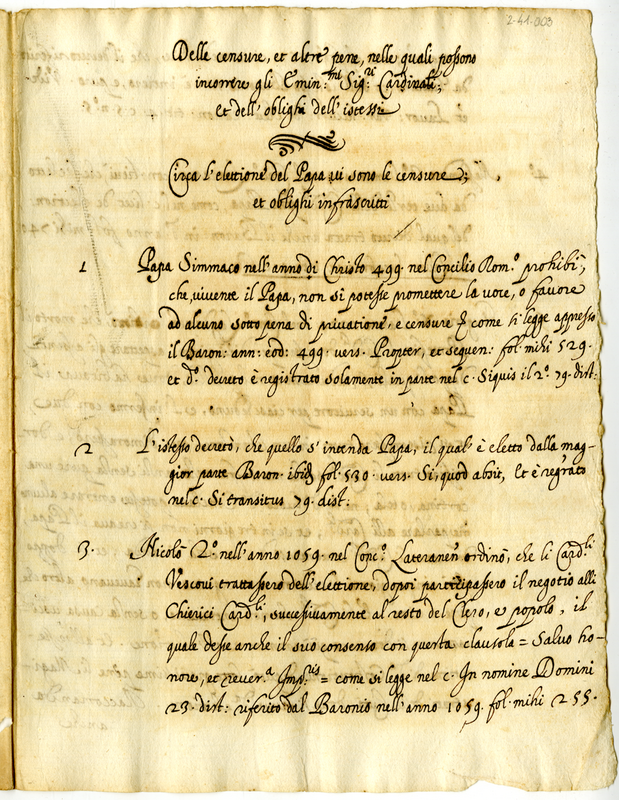 2-41-003
Delle censure, et altre pene, nelle quali possono
incorrere gli Emin:mi Sig:ri Cardinali;
et dell' oblighi dell' istessi
Circa l'elettione del Papa vi sono le censure;
et oblighi infrascritti
1 Papa Simmaco nell'anno di Christo 499. nel Concilio Rom.o prohibì,
che, vivente il Papa, non si potesse promettere la voce, o favore
ad alcuno sotto pena di privatione, e censure come si legge appresso
il Baron: ann: eod: 499. vers. Propter, et sequen: fol. mihi 529.
et d.o decreto è registrato solamente in parte nel c. Siquis il 2.o 79. dist:
2 L'istesso decretò, che quello s'intenda Papa, il qual' è eletto dalla mag-
gior parte Baron. ibid fol. 530. vers. Si, quod absit, Et è regrato
nel c. Si transitus 79. dist:
3. Nicolò 2.o nell'anno 1059. nel Conc.o Lateranen ordinò, che li Card.li
Vescovi trattassero dell'elettione, dopoi partecipassero il negotio alli
Chierici Card.li, successivamente al resto del Clero, e popolo, il
quale desse anche il suo consenso con questa clausola = Salvo ho-
nore, et rever.a Imp.ris = come si legge nel c. In nomine Domini
23. dist: riferito dal Baronio nell'anno 1059. fol. mihi 255.